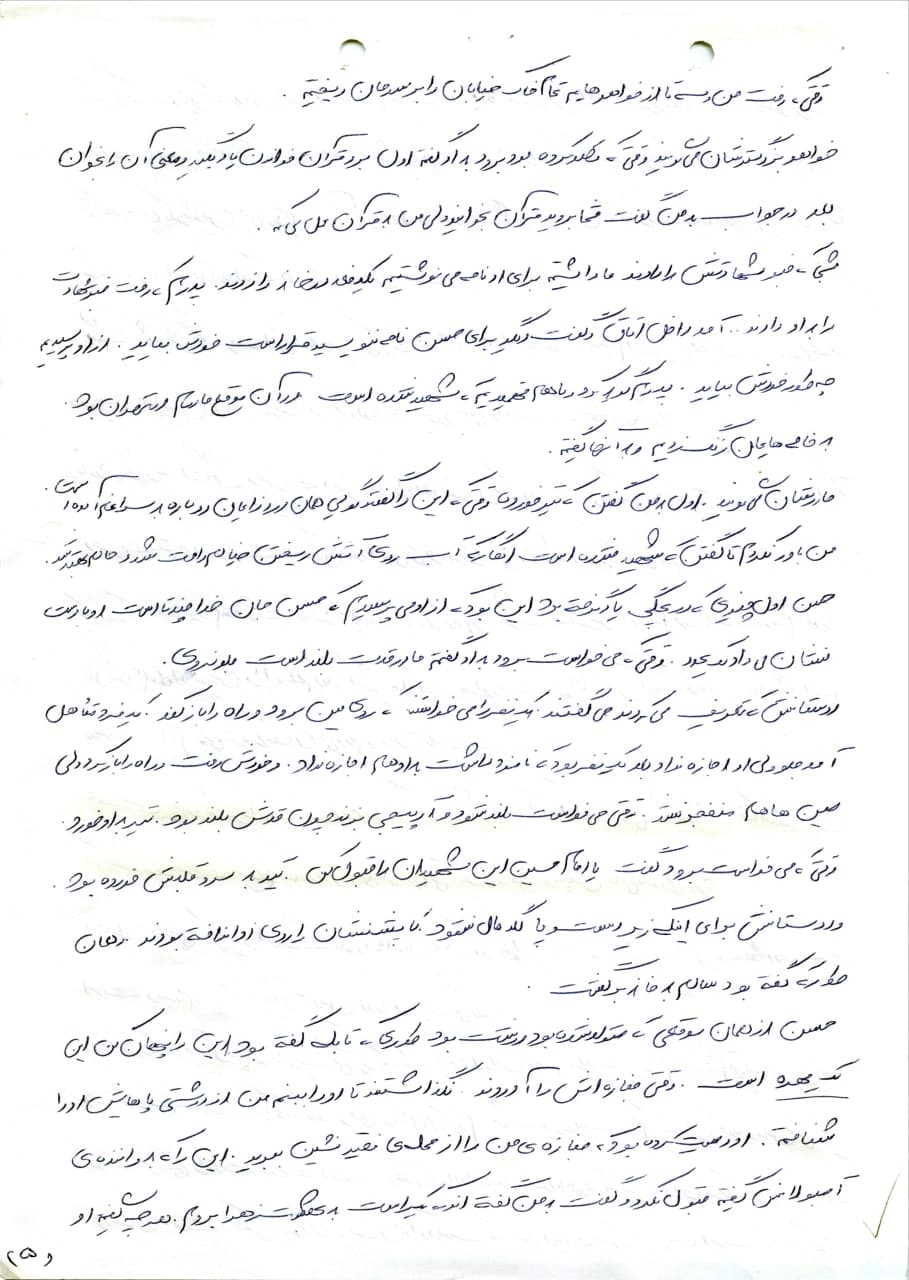 وقتی که رفت من و سه تا از خواهرهایم تمام خاک خیابان را بر سرمان ریختیم.
خواهر بزرگترشان می‌گویند وقتی که کلاس کرده بود برود به او گفتم اول برو قرآن خواندن یاد بگیر و معنی آن را بخوان
بعد در جواب به من گفت شما بروید قرآن بخوانید ولی من به قرآن عمل می‌کنم.
شبی که خبر شهادتش را دادند ما داشتیم برای او نامه می‌نوشتیم یک دفعه در خانه را زدند. پدرم که رفت خبر شهادت
را به او دادند.. آمد داخل اتاق و گفت دیگر برای حسن نامه ننویسید قرار است خودش بیاید. از او پرسیدیم
چه طور خودش بیاید. پدرم گریه کرد و ما هم فهمیدیم که شهید شده است در آن موقع مادرم در تهران بود.
به فامیل‌هایمان زنگ زدیم و به آنها گفتیم.
مادرشان می‌گویند. اول به من گفتن که تیر خورده وقتی که این را گفتند گویی همان درد زایمان دوباره به سراغم آمده است.
من باور نکردم تا گفتن که شهید شده است انگار که آب روی آتش ریختن خیالم راحت شد و حالم بهتر شد.
حسن اول چیزی که در بچگی یاد گرفته بود این بود که از او می‌پرسیدم که حسن جان خدا چندتا است او با دست
نشان می‌داد یک عدد. وقتی که می‌خواست برود به او گفتم مادر قدت بلند است جلو نروی.
دوستانش که تعریف می‌کردند می‌گفتند یک نفر را می‌خواستند که روی مین برود و راه را باز کند. یک نفر متاهل
آمد جلو ولی او اجازه نداد بعد یک نفر بود که نامزد داشت به او هم اجازه نداد. و خودش رفت و راه را باز کرد ولی
مین‌ها هم منفجر نشد. وقتی می‌خواست بلند شود و آرپیجی بزند چون قدش بلند بود. تیر به او خورد.
وقتی که می‌خواست برود گفت یا امام حسین این شهیدان را قبول کن. تیر به سر و قلبش خورده بود.
و دوستانش برای اینکه زیر دست و پا لگدمال نشود کاپشنشان را روی او انداخته بودند. همان
طور که گفته بود سالم به خانه برگشت.
حسن از همان موقعی که متولد شده بود درشت بود طوری که قابله گفته بود این را پنهان کن این
یک معجزه است. وقتی جنازه‌اش را آوردند. نگذاشتند تا او را ببینم من از درشتی پاهایش او را
شناختم. او وصیت کرده بود که جنازه‌ی من را از محله‌ی فقیرنشین ببرید. این را که به راننده‌ی
آمبولانس گفتیم قبول نکرد و گفت به من گفته‌اند که یکراست به بهشت زهرا بروم. هرچه گفتیم او